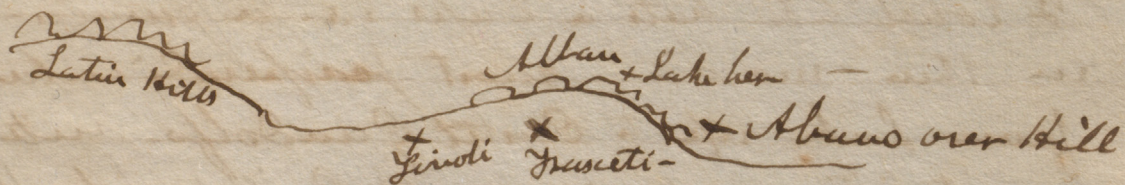 Latin Hills
Alban
+ Lake here
+ Abano over Hill
Tivoli
Frascati